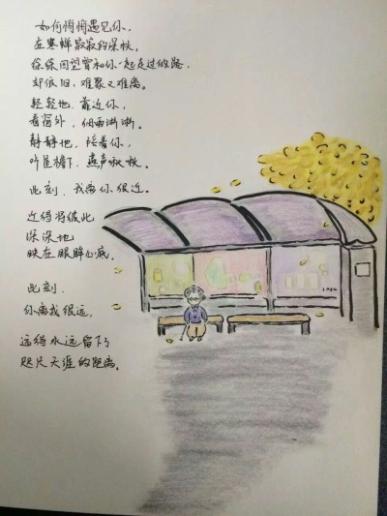 如何悄悄遇见你,
在寒蝉寂寂的深秋。
徐徐回望曾和你一起走过的路,
却依旧,难聚又难离。
轻轻地,靠近你,
看窗外,细雨淅淅。
静静地,陪着你,
听屋檐下,燕声啾啾。
此刻,我离你很近。
近得将彼此
深深地
映在眼眸心底。
此刻,
你离我很远,
远得永远留下了
咫尺天涯的距离。